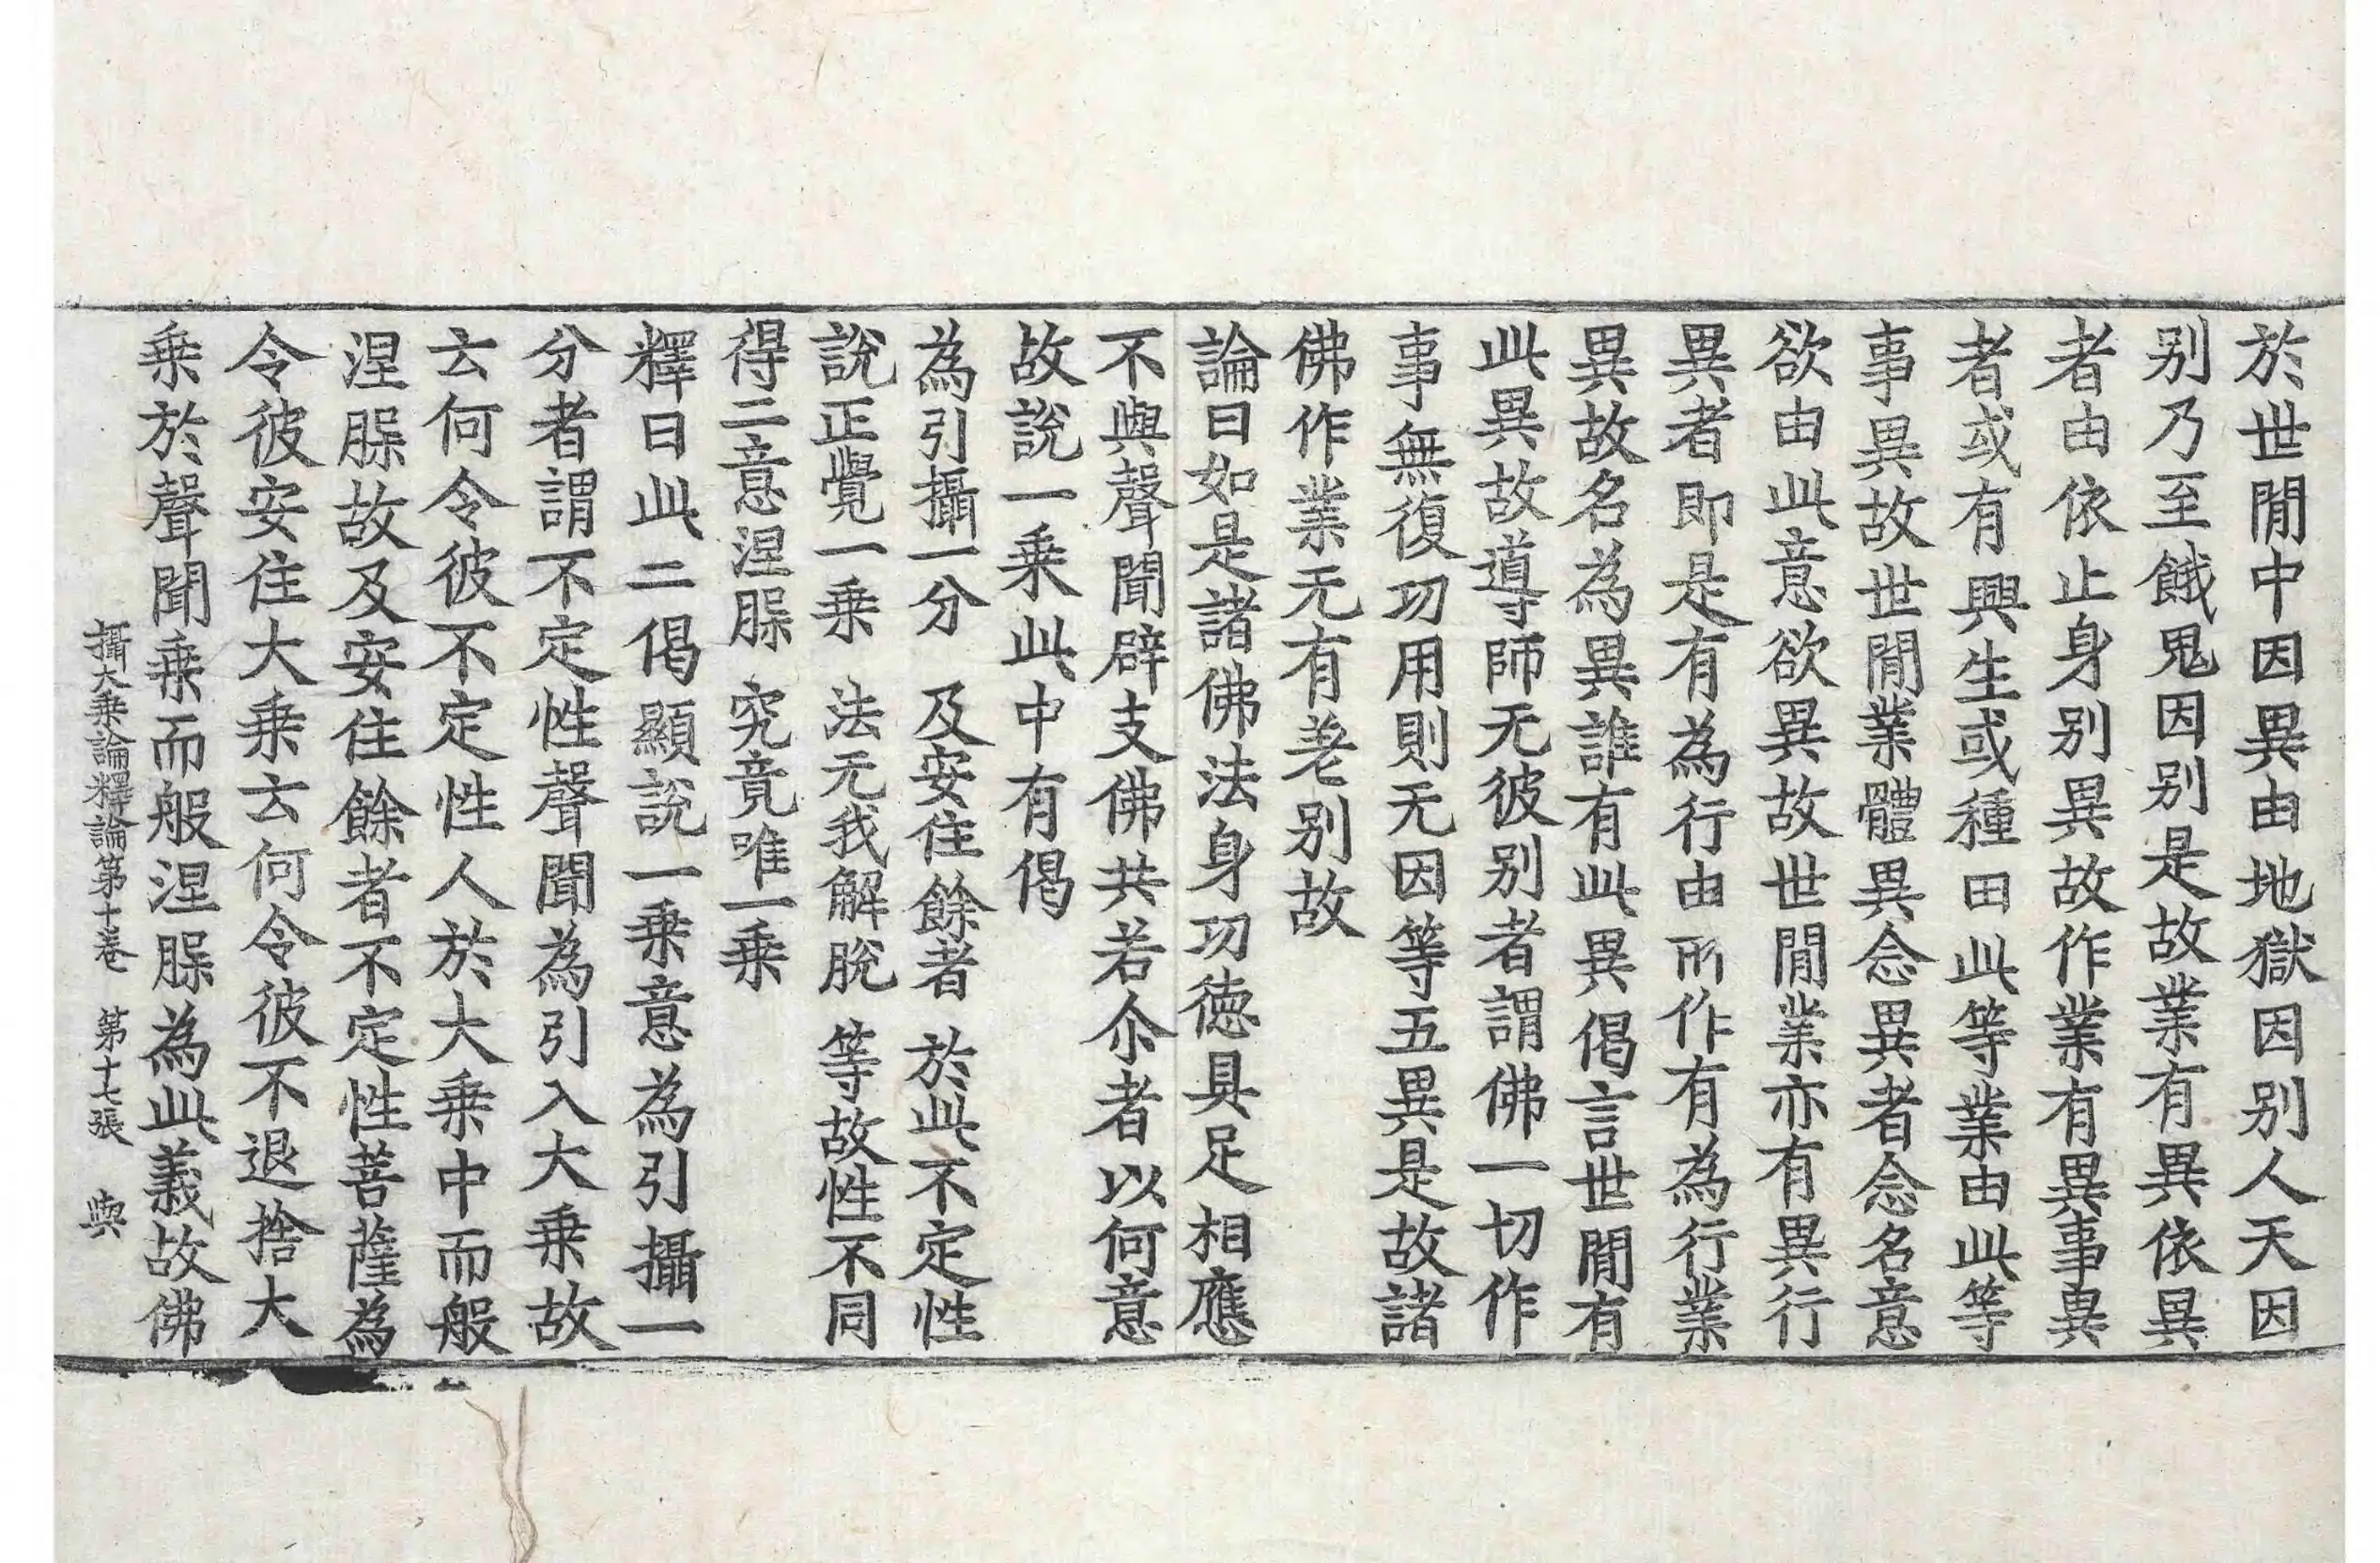 於世閒中因異由地獄因別人天因
別乃至餓鬼因別是故業有異依異
者由依止身別異故作業有異事異
者或有興生或種田此等業由此等
事異故世閒業體異念異者念名意
欲由此意欲異故世閒業亦有異行
異者即是有為行由所作有為行業
異故名為異誰有此異偈言世閒有
此異故導師无彼別者謂佛一切作
事無復功用則无因等五異是故諸
佛作業无有差別故
論曰如是諸佛法身功德具足相應
不與聲聞辟支佛共若尒者以何意
故說一乘此中有偈
為引攝一分　及安住餘者　於此不定性
說正覺一乘　法无我解脫　等故性不同
得二意涅槃　究竟唯一乘
釋曰此二偈顯說一乘意為引攝一
分者謂不定性聲聞為引入大乘故
云何令彼不定性人於大乘中而般
涅槃故及安住餘者不定性菩薩為
令彼安住大乘云何令彼不退捨大
乘於聲聞乘而般涅槃為此義故佛
攝大乘論釋論第十卷　第十七張　與